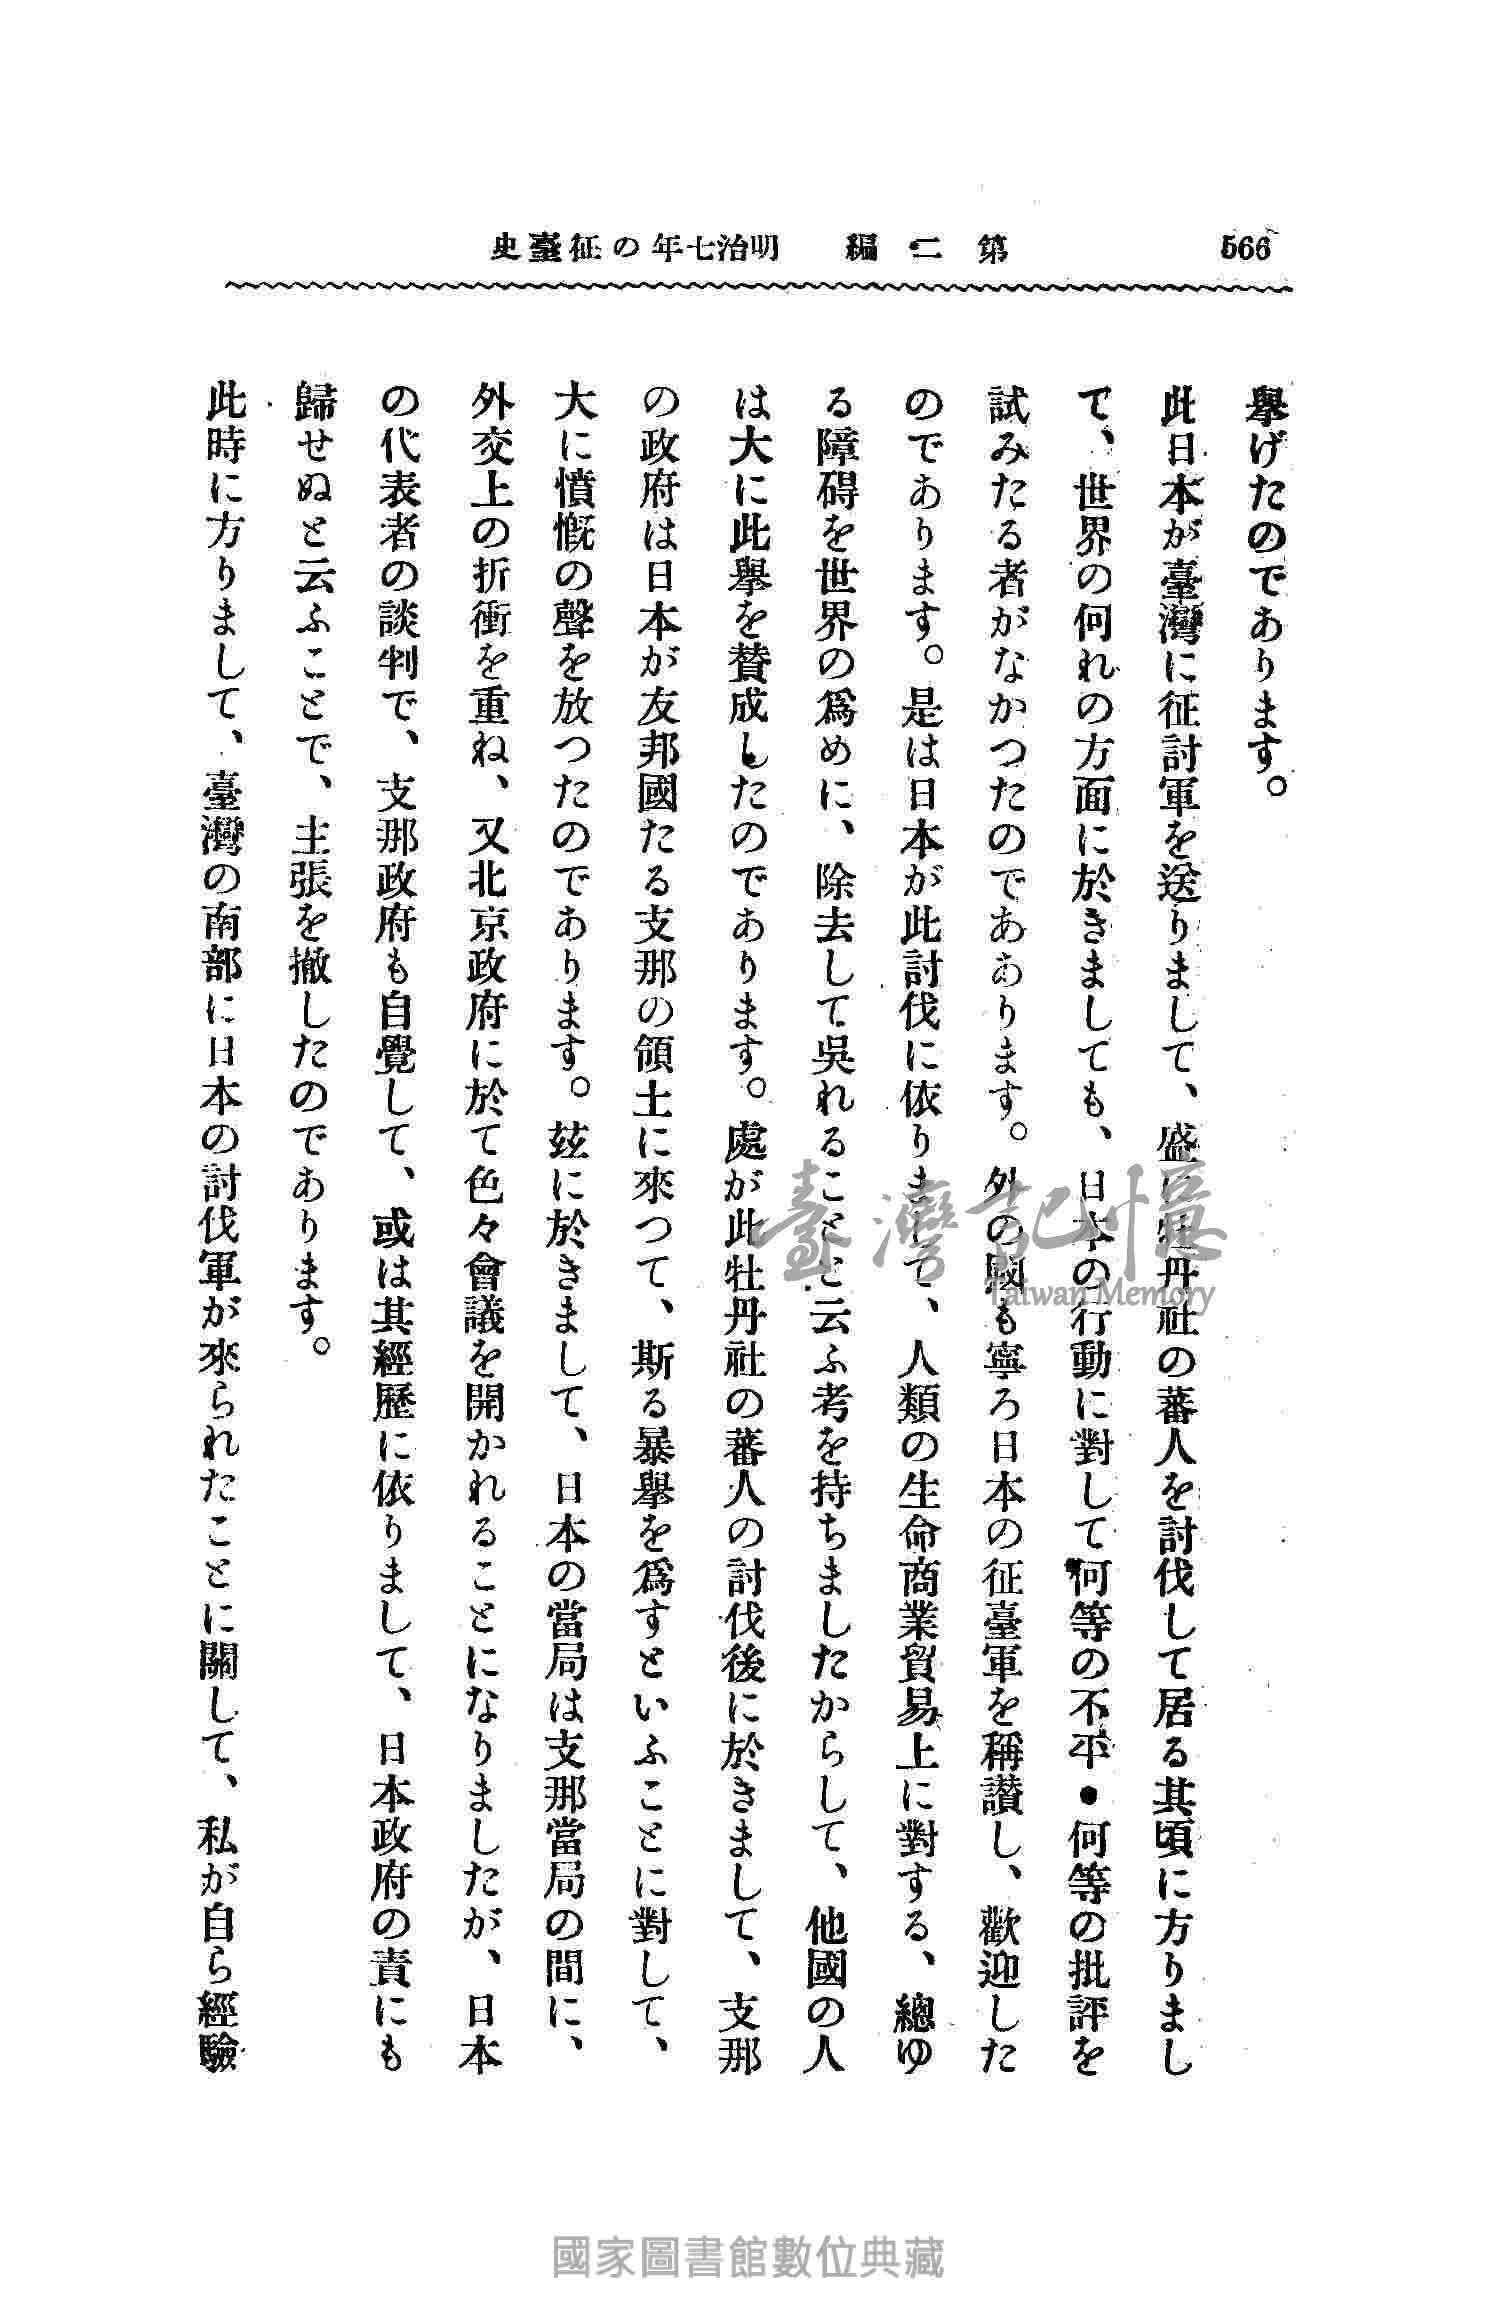 566
第二編　明治七年の征臺史
擧げたのであります。
此日本が臺灣に征討軍を送りまして、盛に牡丹社の蕃人を討伐して居る其頃に方りまし
て、世界の何れの方面に於きましても、日本の行動に對して何等の不平●何等の批評を
試みたる者がなかつたのでああります。外の國も寧ろ日本の征臺軍を稱讃し、歡迎した
のであります。是は日本が此討伐に依りまして、人類の生命商業貿易上に對する、總ゆ
る障碍を世界の爲めに、除去して吳れることと云ふ考を持ちましたからして、他國の人
は大に此擧を賛成したのであります。處が此牡丹社の蕃人の討伐後に於きまして、支那
の政府は日本が友邦國たる支那の領土に來つて、斯る暴擧を爲すといふことに對して、
大に憤慨の聲を放つたのであります。玆に於きまして、日本の當局は支那當局の間に、
外交上の折衝を重ね、又北京政府に於て色々會議を開かれることになりましたが、日本
の代表者の談判で、支那政府も自覺して、或は其經歷に依りまして、日本政府の責にも
歸せぬと云ふことで、主張を撤したのであります。
此時に方りまして、臺灣の南部に日本の討伐軍が來られたことに關して、私が自ら經驗
臺灣記憶
Taiwan Memory
國家圖書館數位典藏